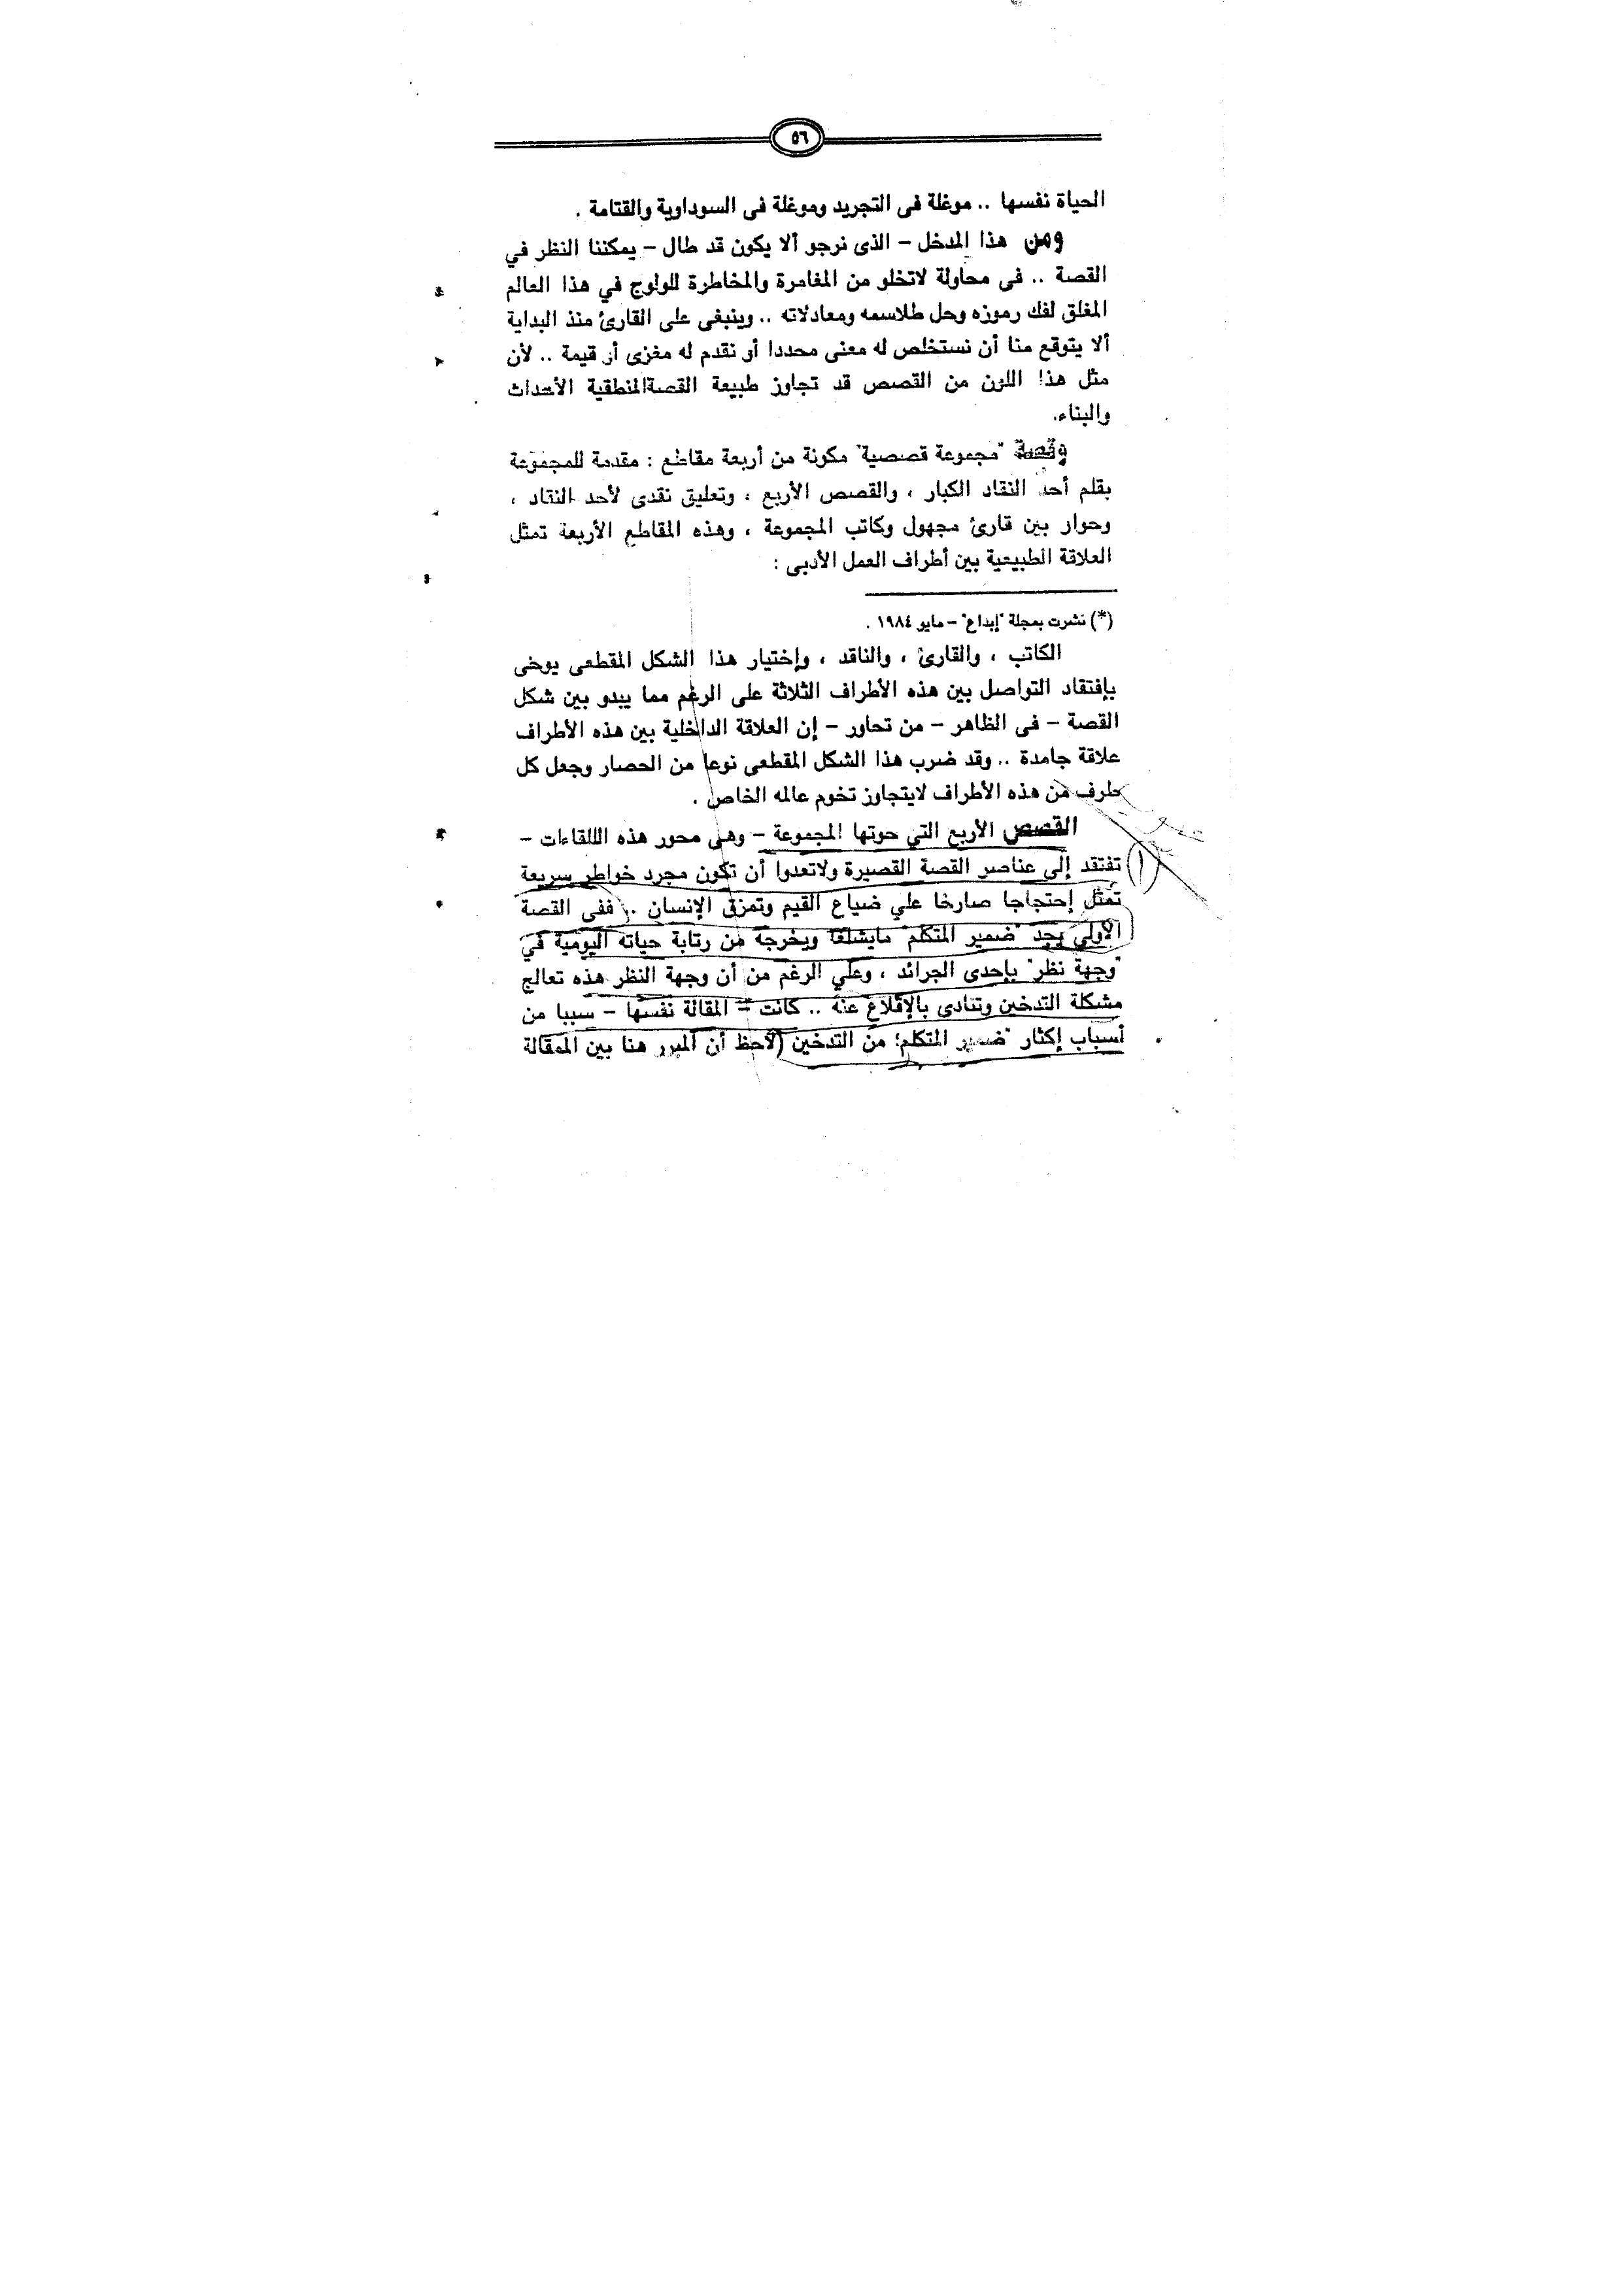 ٥٦
الحياة نفسها .. موغلة فى التجريد وموغلة فى السوداوية والقتامة .
ومن هذا المدخل – الذى نرجو ألا يكون قد طال – يمكننا النظر في
القصة .. فى محاولة لاتخلو من المغامرة والمخاطرة للولوج في هذا العالم
المغلق لفك رموزه وحل طلاسمه ومعادلاته .. وينبغى على القارئ منذ البداية
ألا يتوقع منا أن نستخلص له معنى محددا أو نقدم له مغزى أو قيمة .. لأن
مثل هذا اللون من القصص قد تجاوز طبيعة القصةالمنطقية الأحداث
والبناء.
وقصة "مجموعة قصصية" مكونة من أربعة مقاطع : مقدمة للمجموعة
بقلم أحد النقاد الكبار ، والقصص الأربع ، وتعليق نقدى لأحد النقاد ،
وحوار بين قارئ مجهول وكاتب المجموعة ، وهذه المقاطع الأربعة تمثل
العلاقة الطبيعية بين أطراف العمل الأدبى :
(*) نشرت بمجلة "إبداع" – مايو ١٩٨٤ .
الكاتب ، والقارئ ، والناقد ، وإختيار هذا الشكل المقطعى يوحى
بإفتقاد التواصل بين هذه الأطراف الثلاثة على الرغم مما يبدو بين شكل
القصة – فى الظاهر – من تحاور – إن العلاقة الداخلية بين هذه الأطراف
علاقة جامدة .. وقد ضرب هذا الشكل المقطعى نوعا من الحصار وجعل كل
طرف من هذه الأطراف لايتجاوز تخوم عالمه الخاص .
القصص الأربع التي حوتها المجموعة – وهى محور هذه اللقاءات –
تفتقد إلى عناصر القصة القصيرة ولاتعدوا أن تكون مجرد خواطر سريعة
تمثل إحتجاجا صارخا علي ضياع القيم وتمزق الإنسان .. ففى القصة
الأولى يجد "ضمير المتكلم" مايشلغا ويخرجه من رتابة حياته اليومية في
"وجهة نظر" بإحدى الجرائد ، وعلي الرغم من أن وجهة النظر هذه تعالج
مشكلة التدخين وتنادى بالإقلاع عنه .. كانت – المقالة نفسها – سببا من
أسباب إكثار "ضمير المتكلم؛ من التدخين (لاحظ أن المبرر هنا بين المقالة